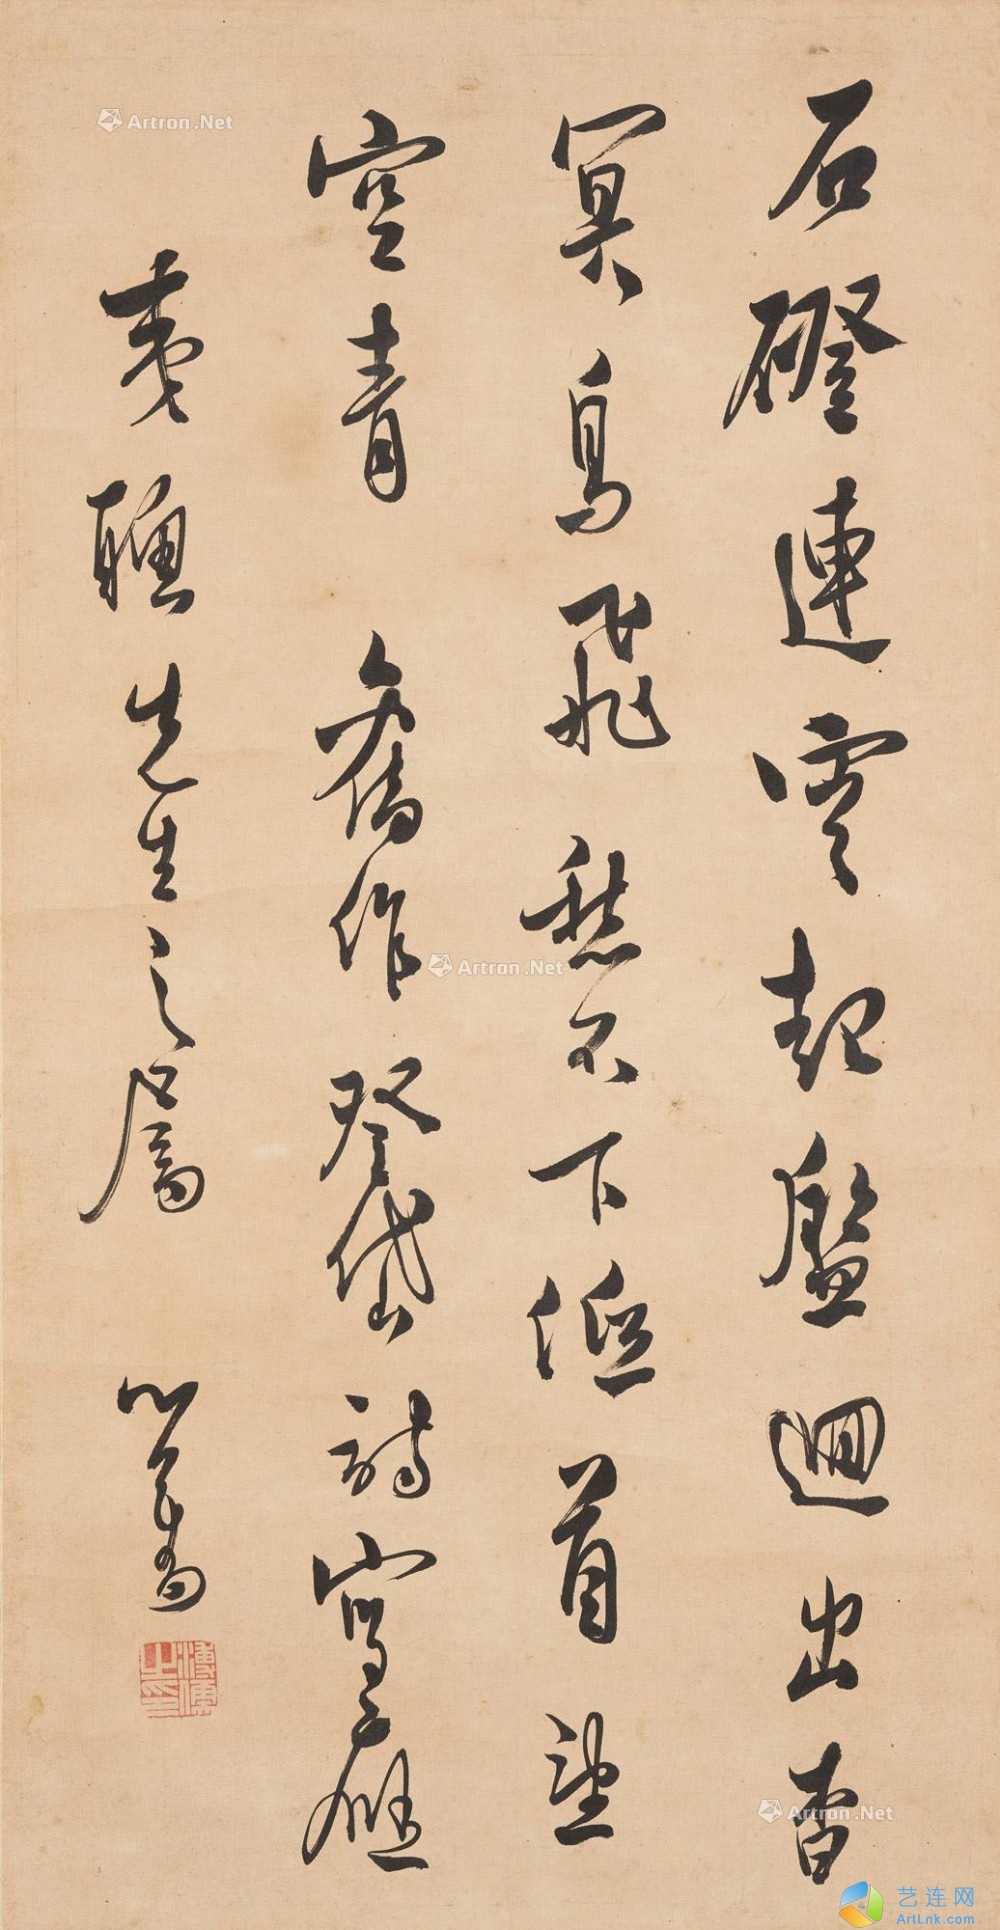 石磴連雲起盤迴出杳
冥鳥飛愁不下低首望
空青 舊作登岱詩寫應
夷先生之屬 心畬
溥儒之印
Artron.Net
Artron.Net
Artron.Net
艺连网
ArtLnk.com